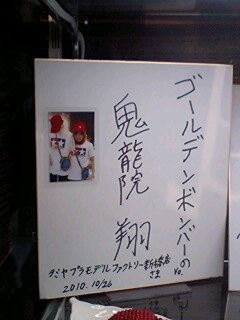 ゴールデンボンバーの
Vo.
鬼龍院 翔
タミヤプラモデルファクトリー新橋店
さま
2010.10/26